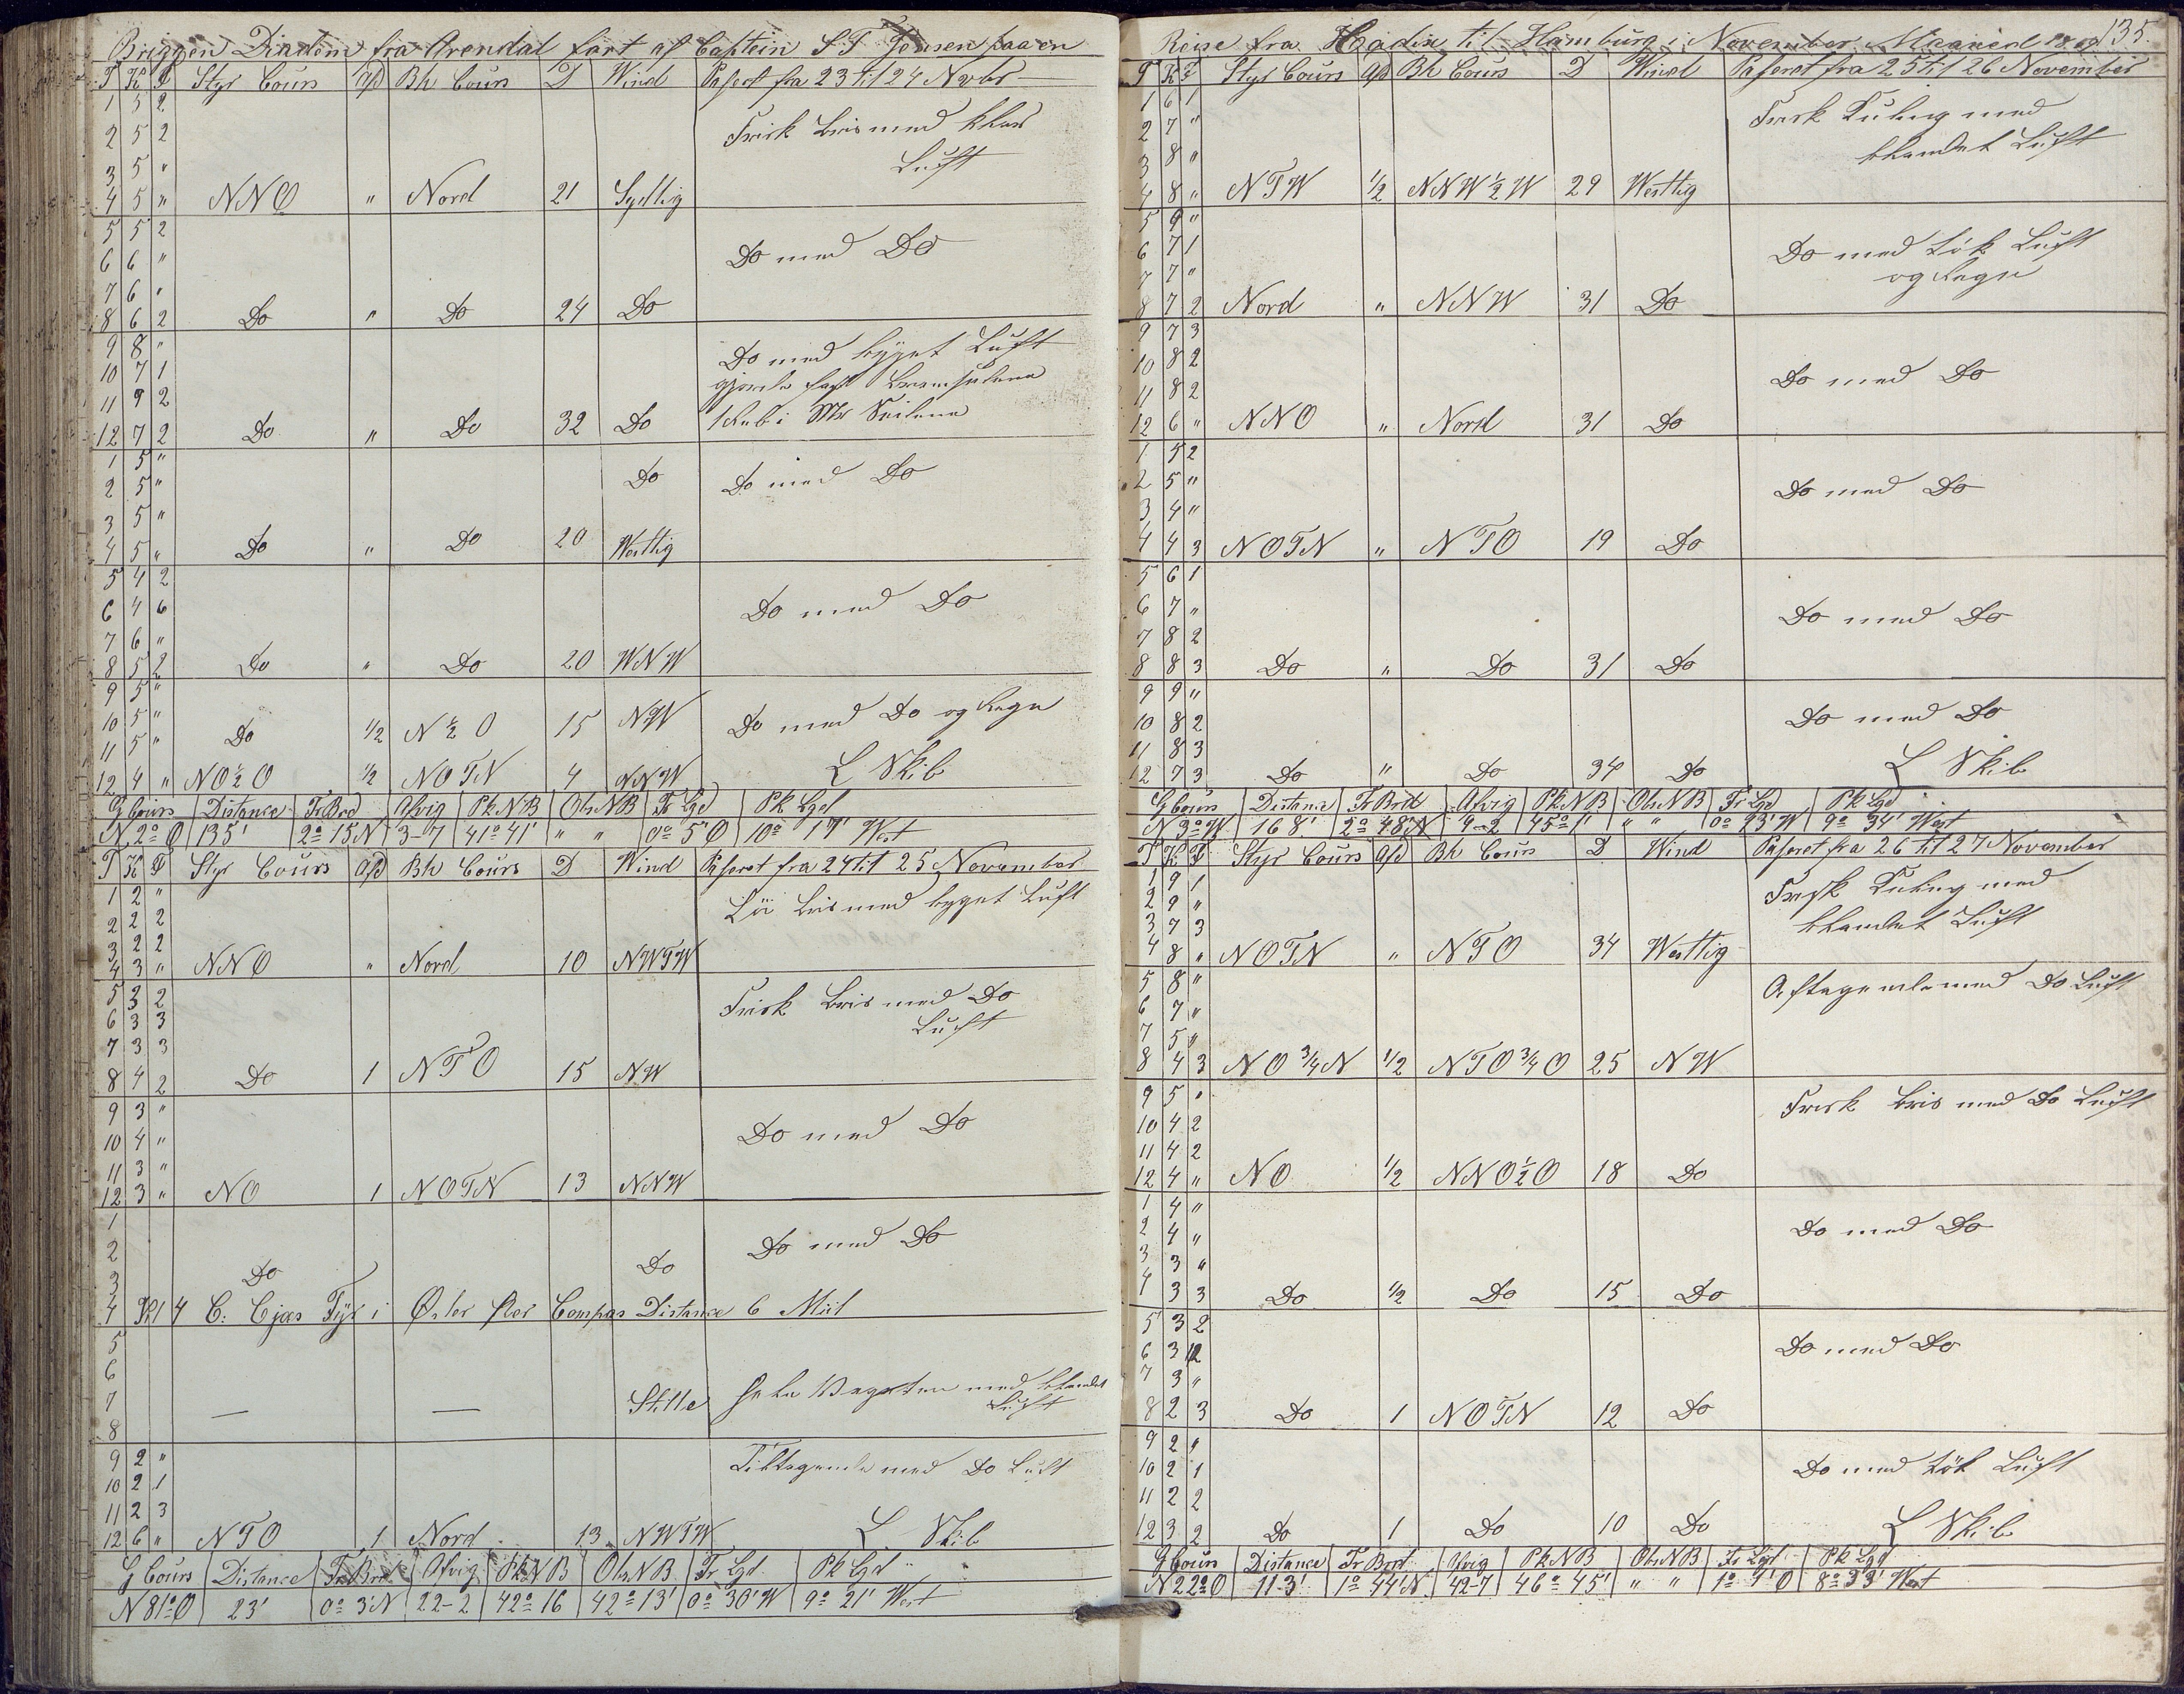 Briggen Diadem fra Arendal fört af Captein S T Jensen paa en
T K F Styr Cours Afd Bh Cours D Wind Paseret fra 23 til 24 Novbr
1 5 2
2 5 2 Frisk Bris med klar
3 5 " Luft
4 5 " NNO " Nord 21 Sydlig
5 5 2
6 6 " Do med Do
7 6 "
8 6 2 Do " Do 24 Do
9 8 " Do med bÿget Luft
10 7 1 gjorde fast Bramseilene
11 9 2
12 7 2 Do " Do 32 Do 1 Reb i Mrs Seilene
1 5 "
2 5 " Do Do med Do
3 5 "
4 5 " Do " Do 20 Westlig
5 4 2
6 4 6 Do med Do
7 6 "
8 5 2 Do " Do 20 WNW
9 5 "
10 5 " Do 1/2 N 1/2 O 15 NW Do med Do og Regn
11 5 "
12 4 " NO 1/2 O 1/2 NOTN 4 NNW L Skib
G Cours Distance Fr Brd Afvig Pk NB Obs NB Fr Lgd Pk Lgd
N 2° O 135' 2° 15 N 3-7 41° 41' " " 0° 5' O 10° 17' West
T K F Styr Cours Afd Bh Cours D Wind Paseret fra 24 til 25 November
1 2 " Lö Bris med byget Luft
2 2 2
3 2 2
4 3 " NNO " Nord 10 NWTW
5 3 2 Frisk Bris med Do
6 3 3 Luft
7 3 3
8 4 2 Do 1 NTO 15 NW
9 3 "
10 4 " Do med Do
11 3 "
12 3 " NO 1 NOTN 13 NNW
1
2 Do Do med Do
3 Do
4 Kl 4 C: Ejæs Fÿr i Öster per Compas Distance 6 Miil
5
6
7 — — Stille hele Vagten med blandet
8 Luft
9 2 " Tiltagende med Do Luft
10 2 1
11 2 3
12 6 " NTO 1 Nord 13 NWTW L Skib
G Cours Distance Fr Brd Afvig Pk NB Obs NB Fr Lgd Pk Lgd
N 81° O 23' 0° 3' N 22-2 42° 16 42° 13' 0° 30' W 9° 21' West
Reise fra Kadix til Hamburg i November Maaned 135.
T K F Styr Cours Afd Bh Cours D Wind Paseret fra 25 til 26 November
1 6 1 Frisk Kuling med
2 7 " blandet Luft
3 8 "
4 8 " NTW 1/2 NNW 1/2 W 29 Westlig
5 9 "
6 7 1 Do med tök Luft
7 7 " og Regn
8 7 2 Nord " NNW 31 Do
9 7 3
10 8 2 Do med Do
11 8 2
12 6 " NNO " Nord 31 Do
1 5 2
2 5 " Do med Do
3 4 "
4 4 3 NOTN " NTO 19 Do
5 6 1
6 7 " Do med Do
7 8 2
8 8 3 Do " Do 31 Do
9 9 "
10 8 2 Do med Do
11 8 3
12 7 3 Do " Do 34 Do L Skib
G Cours Distance Fr Brd Afvig Pk NB Obs NB Fr Lgd Pk Lgd
N 3° W 168' 2° 48' N 9-2 45° 1' " " 0° 23' W 9° 34' West
T K F Styr Cours Afd Bh Cours D Wind Paseret fra 26 til 27 November
1 9 1 Frisk Kuling med
2 9 " blandet Luft
3 7 3
4 8 " NOTN " NTO 34 Westlig
5 8 " Aftagende med Do Luft
6 7 "
7 5 "
8 4 3 NO 3/4 N 1/2 NTO 3/4 O 25 NW
9 5 " Frisk Bris med Do Luft
10 4 2
11 4 2
12 4 " NO 1/2 NNO 1/2 O 18 Do
1 4 "
2 4 " Do med Do
3 3 "
4 3 3 Do 1/2 Do 15 Do
5 3 2
6 3 2 Do med Do
7 3 "
8 2 3 Do 1 NOTN 12 Do
9 2 "
10 2 1 Do med tök Luft
11 2 2
12 3 2 Do 1 Do 10 Do L Skib
G Cours Distance Fr Brd Afvig Pk NB Obs NB Fr Lgd Pk Lgd
N 22° O 113' 1° 44' N 42-7 46° 45' " " 1° 1' O 8° 33' West